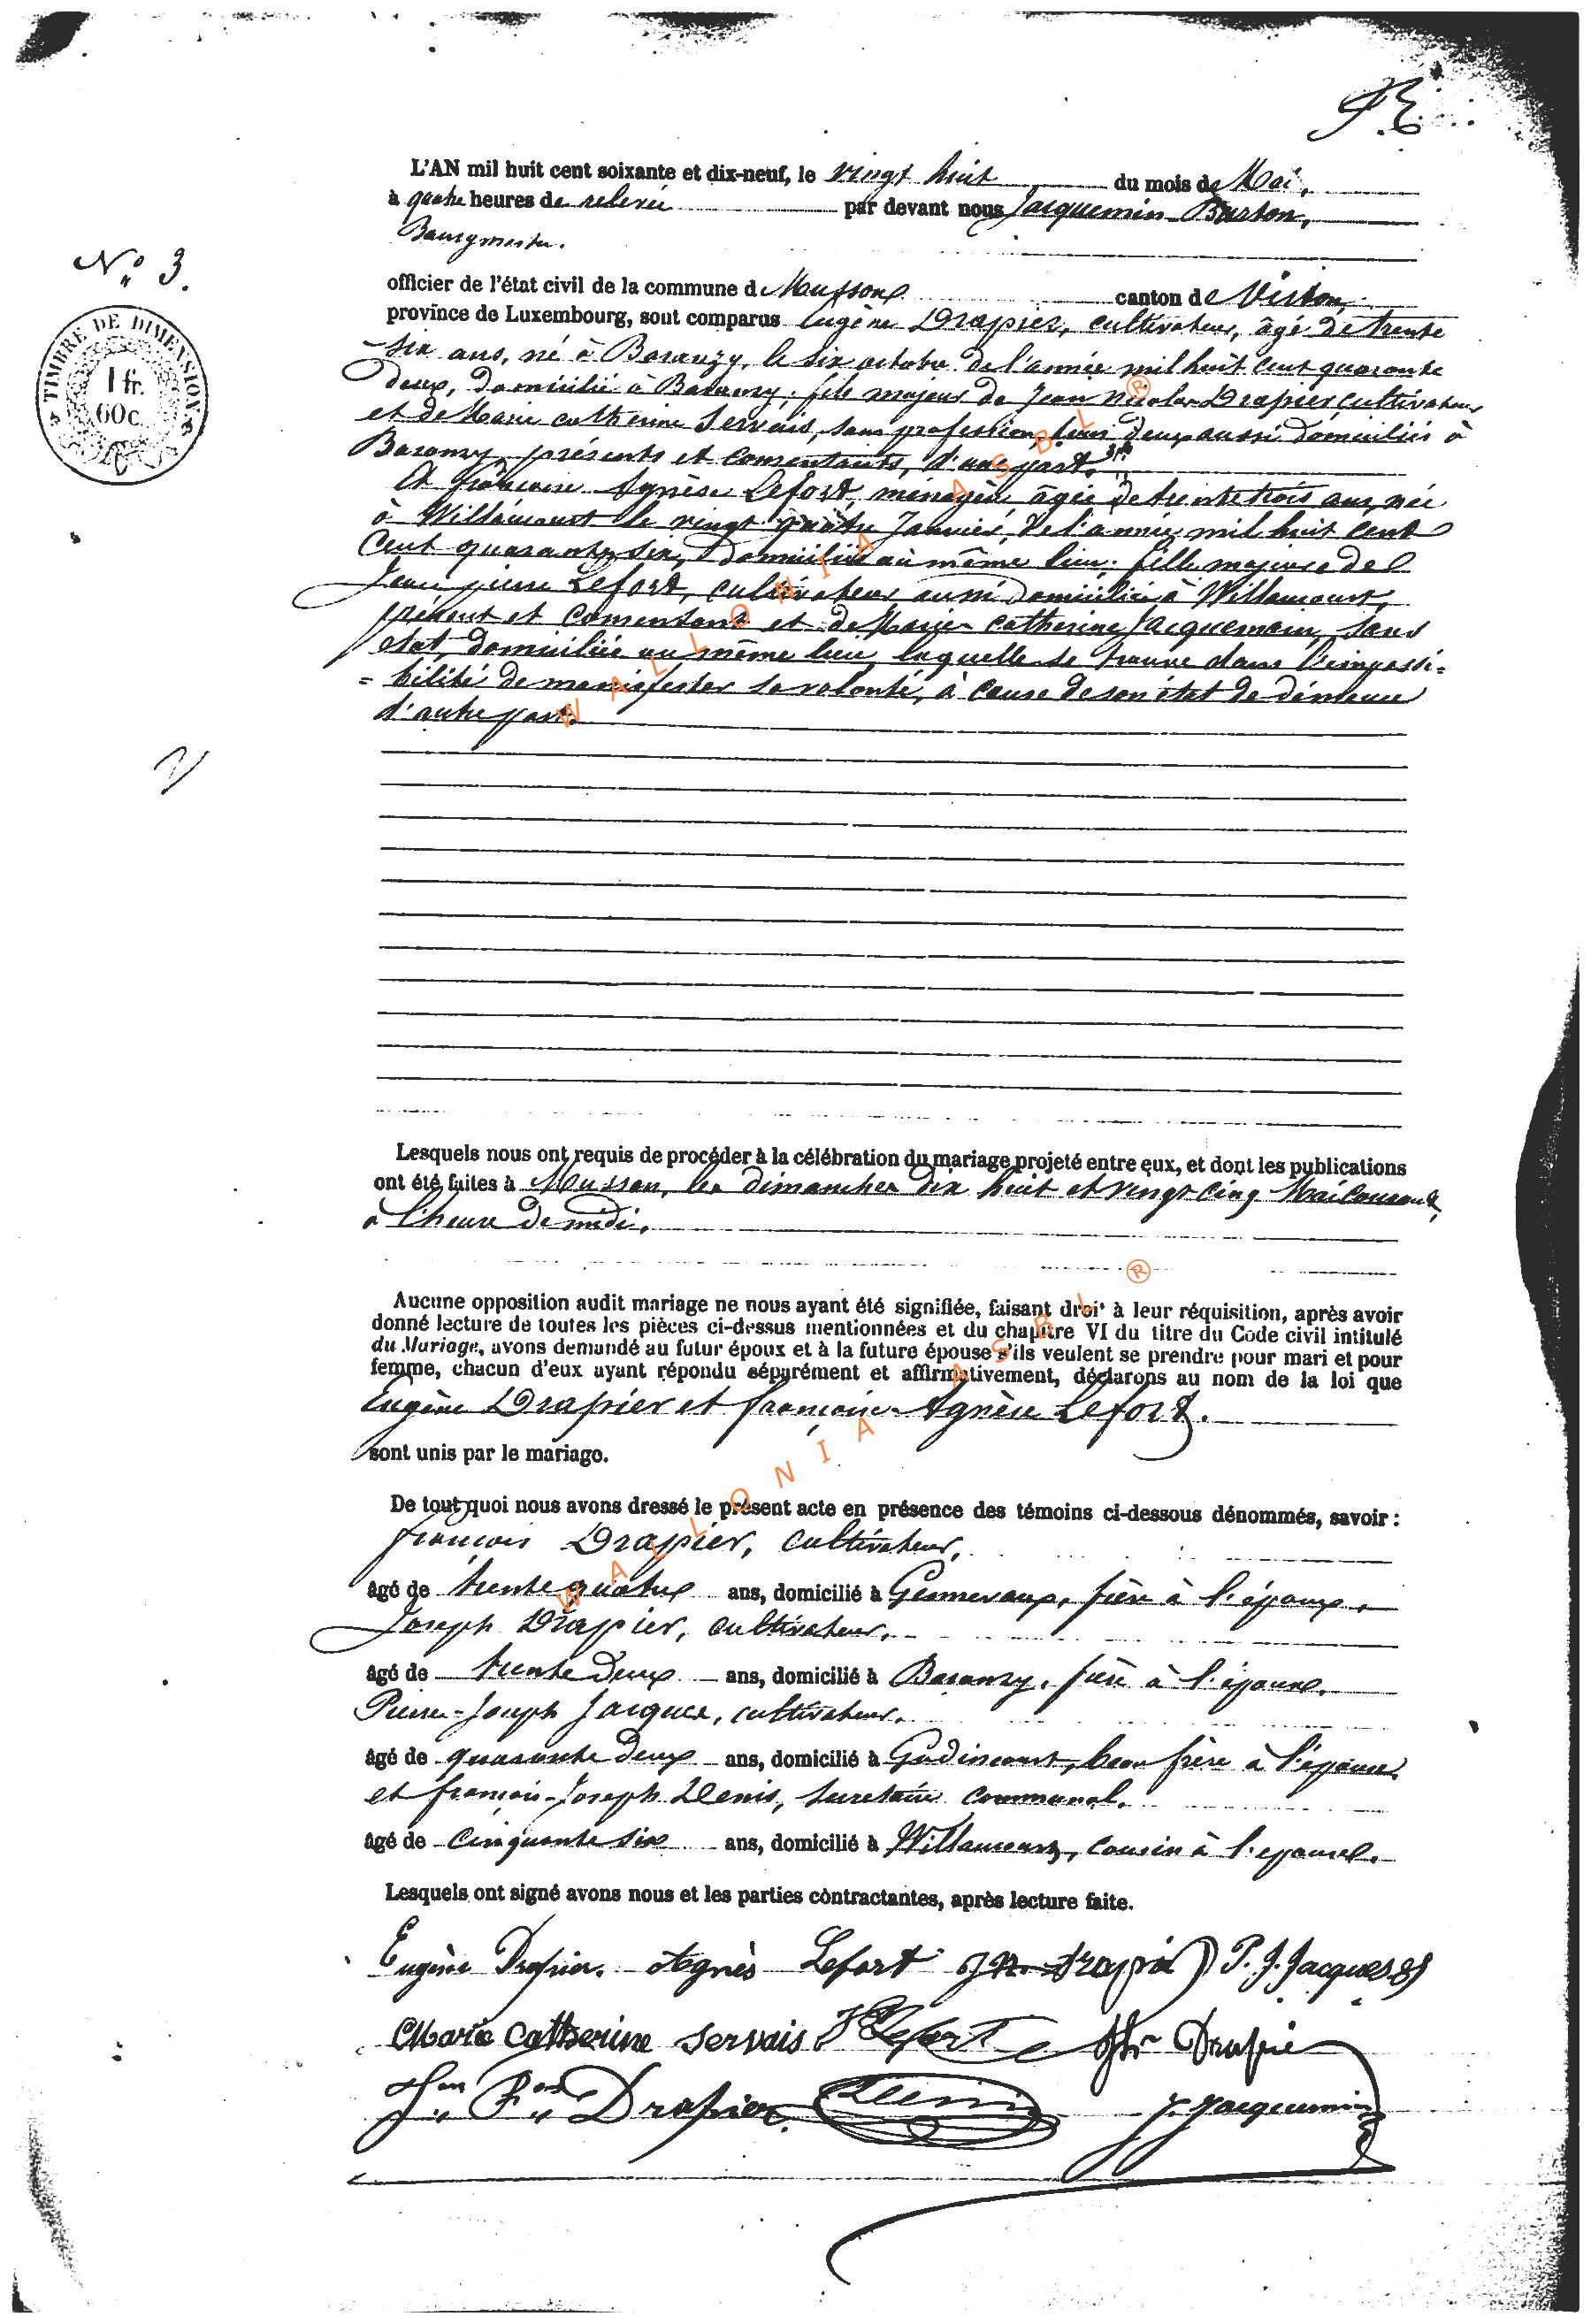 N° 3.
TIMBRE DE DIMENSION
1 fr.
60 c.
L'AN mil huit cent soixante et dix-neuf, le vingt huit du mois de Mai,
à quatre heures de relevée par devant nous Jacquemin Burton,
Bourgmestre.
officier de l'état civil de la commune de Musson canton de Virton,
province de Luxembourg, sont comparus Eugène Drapier, cultivateur, âgé de trente
six ans, né à Baranzy, le six octobre de l'année mil huit cent quarante
deux, domicilié à Baranzy, fils majeur de Jean Nicolas Drapier cultivateur
et de Marie catherine Servais, sans profession, tous deux aussi domiciliés à
Baranzy présents et consentants, d'une part.
Et françoise Agnèse Lefort, ménagère âgée de trente trois ans, née
à Willancourt le vingt quatre Janvier, de l'année mil huit cent
Cent quarante six, domiciliée au même lieu; fille majeure de
Jean pierre Lefort, cultivateur aussi domicilié à Willancourt,
présent et consentant et de Marie catherine Jacquemin, sans
état, domiciliée au même lieu, laquelle se trouve dans l'impossi=
=bilité de manifester sa volonté, à cause de son état de démence
d'autre part.
Lesquels nous ont requis de procéder à la célébration du mariage projeté entre eux, et dont les publications
ont été faites à Musson, les dimanches dix huit et vingt cinq Mai courant,
à l'heure de midi.
Aucune opposition audit mariage ne nous ayant été signifiée, faisant droit à leur réquisition, après avoir
donné lecture de toutes les pièces ci-dessus mentionnées et du chapitre VI du titre du Code civil intitulé
du Mariage, avons demandé au futur époux et à la future épouse s'ils veulent se prendre pour mari et pour
femme, chacun d'eux ayant répondu séparément et affirmativement, déclarons au nom de la loi que
Eugène Drapier et françoise Agnèse Lefort.
sont unis par le mariage.
De tout quoi nous avons dressé le présent acte en présence des témoins ci-dessous dénommés, savoir :
françois Drapier, cultivateur,
âgé de trente quatre ans, domicilié à Gennevaux, frère à l'époux,
Joseph Drapier, cultivateur,
âgé de trente deux ans, domicilié à Baranzy, frère à l'époux,
Pierre-Joseph Jacques, cultivateur,
âgé de quarante deux ans, domicilié à Godincourt, beau frère à l'épouse
et françois-Joseph Denis, secrétaire communal,
âgé de cinquante six ans, domicilié à Willancourt, cousin à l'épouse.
Lesquels ont signé avons nous et les parties contractantes, après lecture faite.
Eugène Drapier. Agnès Lefort J N Drapié P. J. Jacques
Marie Catherine Servais J P Lefort Drapier
Drapier Denis J. Jacquemin
WALLONIA ASBL ®
WALLONIA ASBL ®